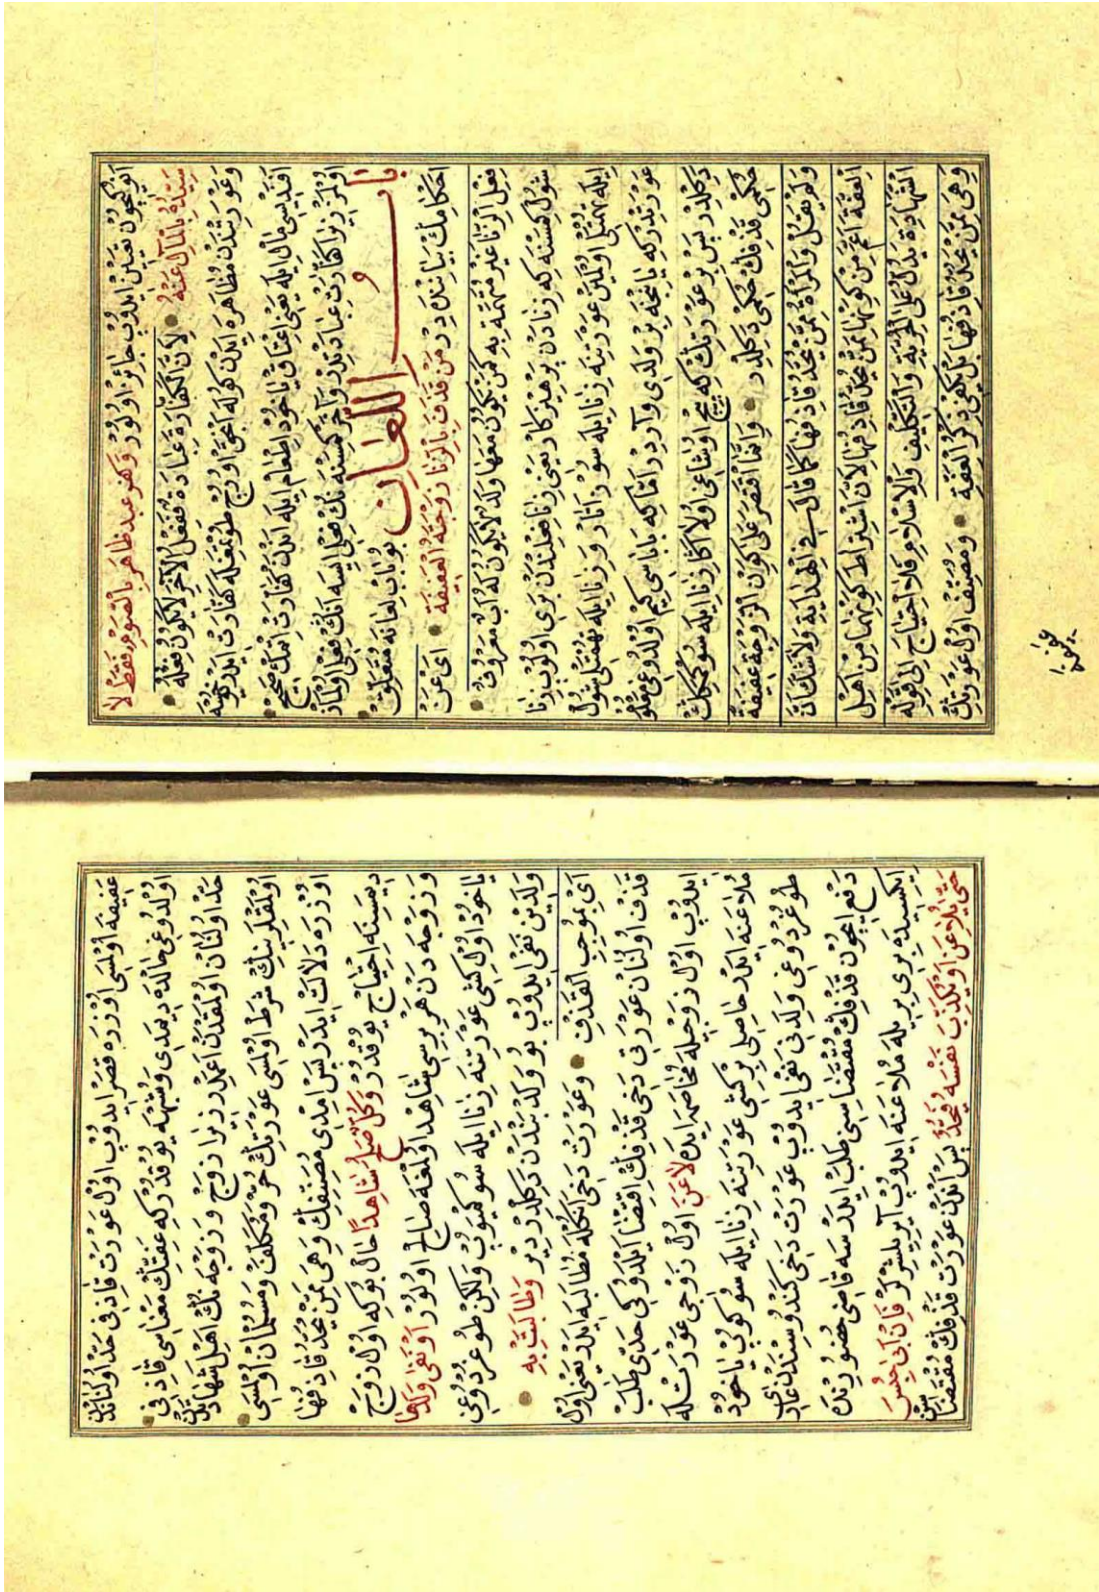 انوكچون تعيين ايدوب جائز اولور وهم عبد ظاهر بالصوم فقط لا
سيده بالمال عنه لان الكفارة عبادة ففعل الآخر لا يكون فعله
وعورتندن مظاهره ايدن كوله انجق اوروج طوتمغله كفارت ايدر
افنديسى مال ايله يعنى اعتاق ياخود اطعام ايله اندن كفارت اتمك صحيح
اولمز زيرا كفارت عبادتدر وآخر كسنه نك فعلى ايسه انك فعلى اولماز
باب اللعان بو باب لعانه متعلق
احكامك بياننده در من قذف بالزنا زوجته العفيفة اى عن
فعل الزنا غير متهمة به كمن يكون معها ولد لا يكون له اب معروف
شول كسنه كه زنادن پرهيزكار يعنى زنا فعلندن برى اولوب زنا
ايله تهمتلى اولمين عورتنه زنا ايله سوز اتار و زنا ايله تهمتلى شول
عورتدركه يانجه بر ولدى واردر اما كه باباسى كيم اولدوغى معلوم
دكلدر پس بر عورتك كه پچ اوشاغى اولا اكا زنا ايله سوكمكك
حكمى قذفك حكمى دكلدر وانما اقتصر على كون الزوجة عفيفة
ولم يقل والمرأة ممن يحد قاذفها كما قال في الهداية ولا شك ان
العفة اعم من كونها ممن يحد قاذفها لان اشتراط كونهما من اهل
الشهادة يدل على الحرية والتكليف والاسلام فلا احتياج الى قوله
وهي ممن يحد قاذفها بل يكفى ذكر العفة ومصنف اول عورتك
عفيفه
عفيفه اولمسى اوزره قصر ايدوب اول عورت قاذفى حد اولناندن
اولدوغى حالده ديمدى وشبهه يوقدركه عفتك معناسى قاذفى
حد اولنان اولمقدن اعمدر زيرا زوج و زوجه نك اهل شهادتدن
اولمقلرينك شرط اولمسى عورتك حره ومكلف ومسلمان اولمسى
اوزره دلالت ايدر پس امدى مصنفك وهي ممن يحد قاذفها
ديمسنه احتياج يوقدر وكل صلح شاهدا حال بوكه اول زوج
وزوجه دن هر برسى شاهد اولمغه صالح اولور او نفى ولدها
ياخود اول كشى عورتنه زنا ايله سوكميوب ولكن طوغردوغى
ولدين نفى ايدوب بو ولد بندن دكلدر دير وطالبت به
اى بموجب القذف وعورت دخى انكله مطالبه ايلر يعنى اول
قذف اولنان عورتى دخى قذفك اقتضا ايلدوكى حدى طلب
ايدوب اول زوجيله مخاصمه ايده لاعن اول زوجى عورتله
ملاعنه ايلر حاصلى بر كشى عورتنه زنا ايله سوكوب ياخود
طوغردوغى ولدنى نفى ايدوب عورت دخى كندوسندن عارى
دفع ايچون قذفك مقتضاسنى طلب ايلرسه قاضى حضورنده
ايكسيده برى بريله ملاعنه ايدوب آيريلشرلر فان ابى حبس
حتى يلاعن او يكذب نفسه فيحد پس اندن عورت قذفك مقتضاسنى